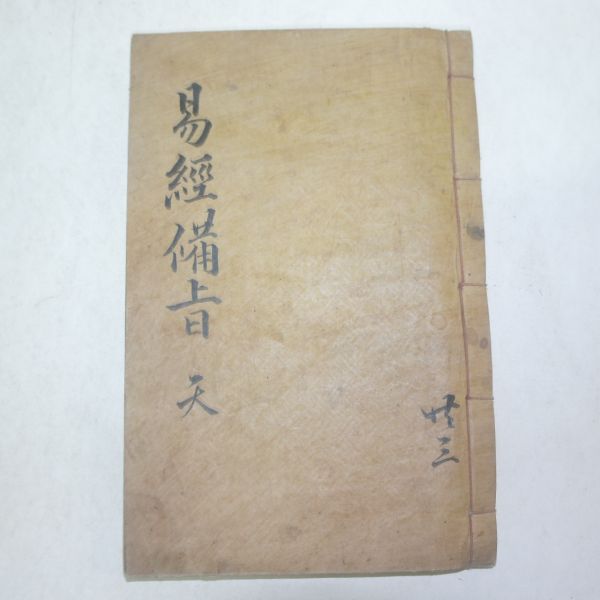 易經備旨 天
共三